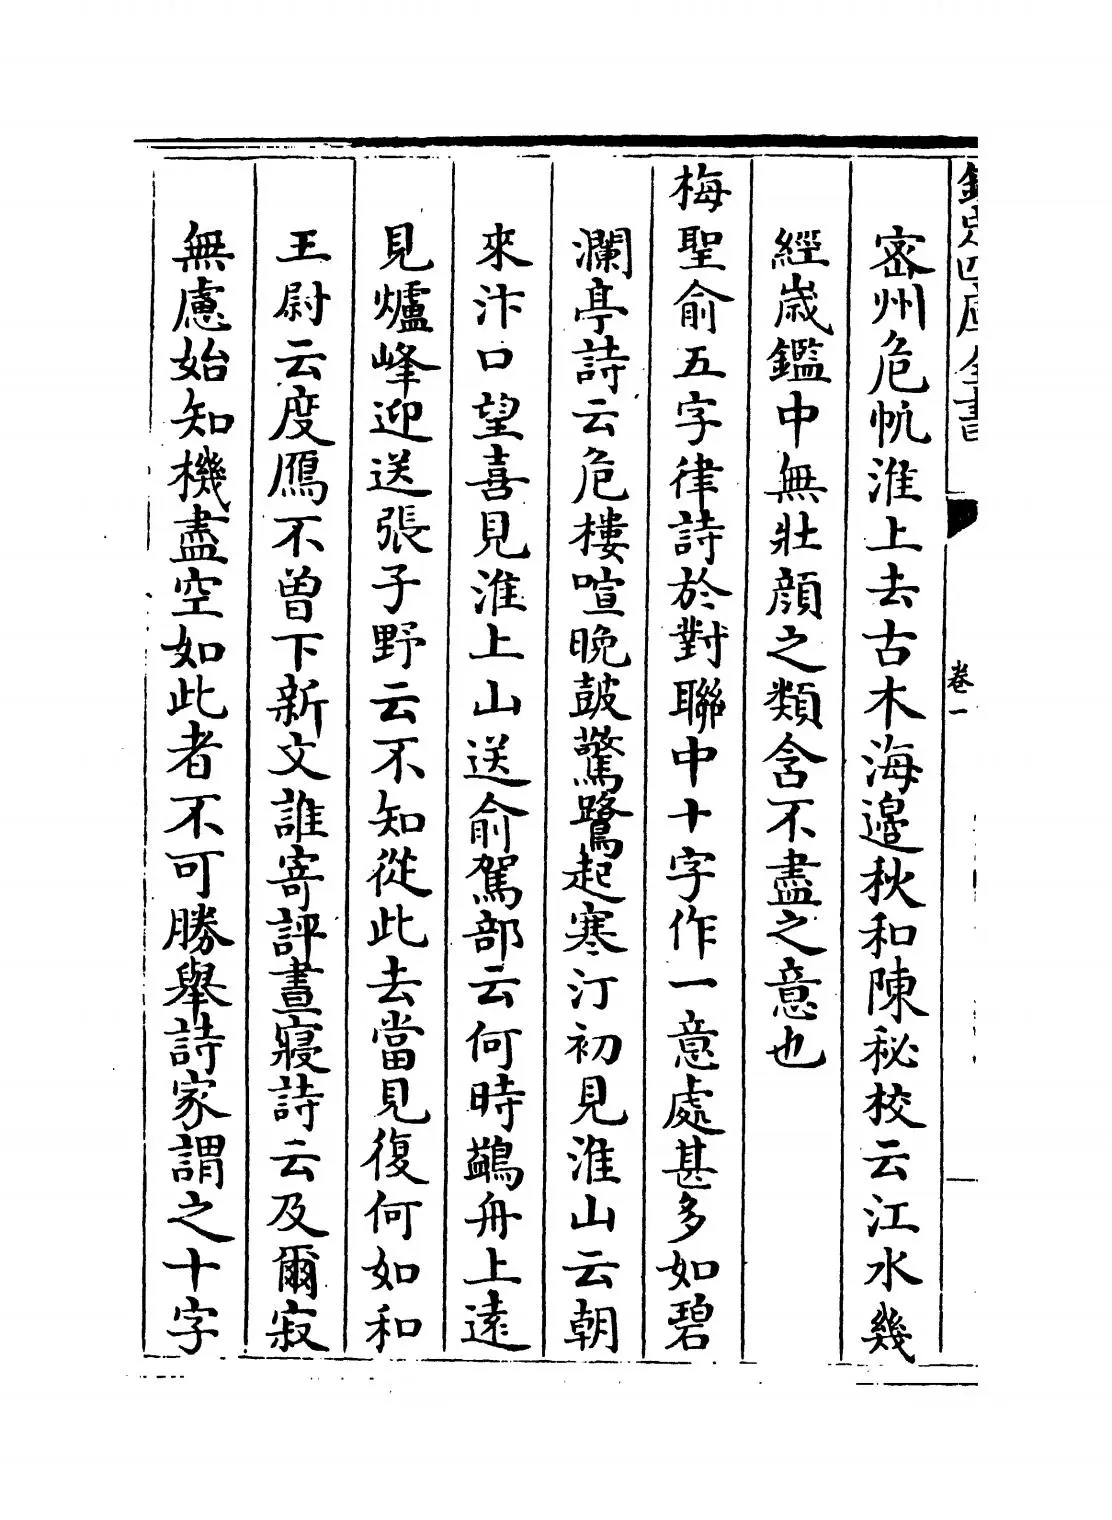 欽定四庫全書
卷一
密州危帆淮上去古木海邉秋和陳秘校云江水幾
經歲鑑中無壯顔之類含不盡之意也
梅聖俞五字律詩於對聯中十字作一意處甚多如碧
瀾亭詩云危樓喧晩鼓驚鷺起寒汀初見淮山云朝
來汴口望喜見淮上山送俞駕部云何時鷁舟上逺
見爐峰迎送張子野云不知從此去當見復何如和
王尉云度鴈不曽下新文誰寄評晝寢詩云及爾寂
無慮始知機盡空如此者不可勝舉詩家謂之十字